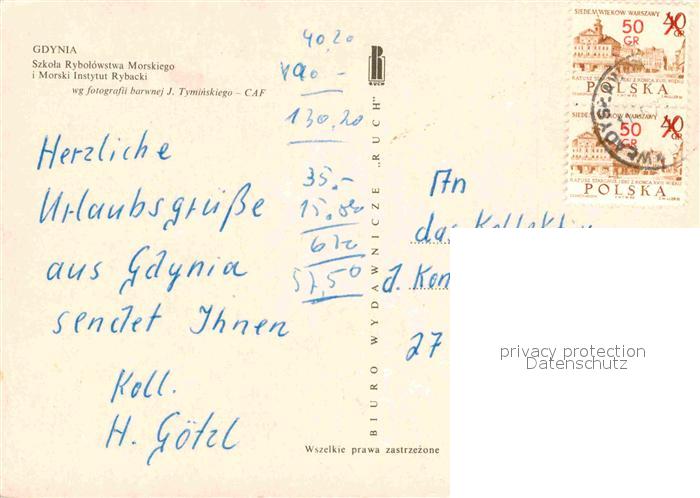 GDYNIA
Szkoła Rybołówstwa Morskiego
i Morski Instytut Rybacki
wg fotografii barwnej J. Tymińskiego – CAF
Herzliche
Urlaubsgrüße
aus Gdynia
sendet Ihnen
Koll.
H. Götzl
40,20
90 -
130,20
35.-
15.
57,50
RUCH
BIURO WYDAWNICZE „RUCH"
Wszelkie prawa zastrzeżone
SIEDEM WIEKÓW WARSZAWY
40
50
GR
POLSKA
SIEDEM WIEKÓW WARSZAWY
40
50
GR
POLSKA
An
das Kollektiv
d. Kon
27
privacy protection
Datenschutz